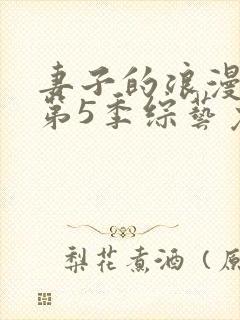 妻子的浪漫
第5季综藝
梨花煮酒（原